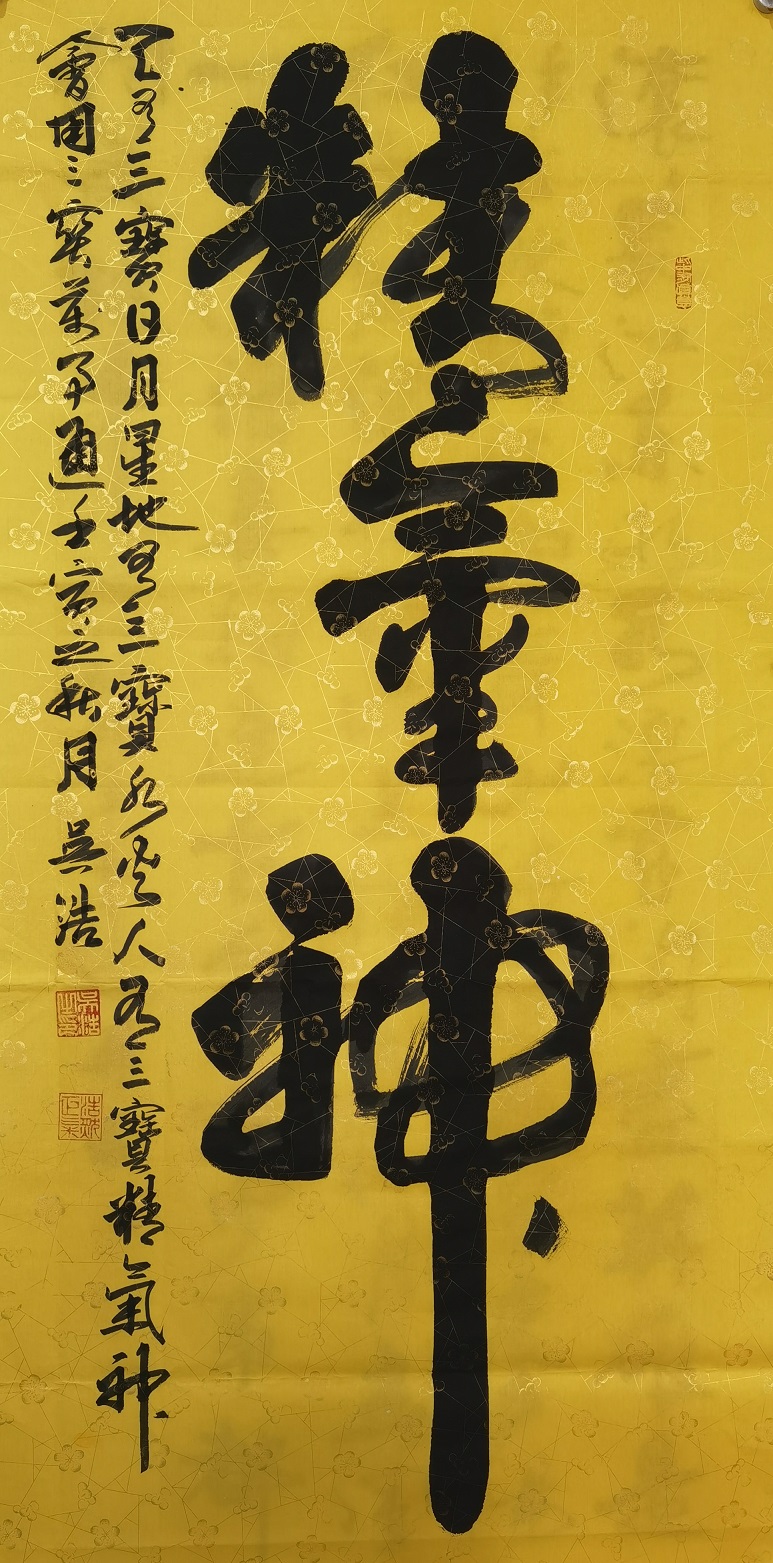 精氣神
天有三寶日月星地有三寶水火人有三寶精氣神
會用三寶萬事通壬寅之秋月吳浩
吳浩之印